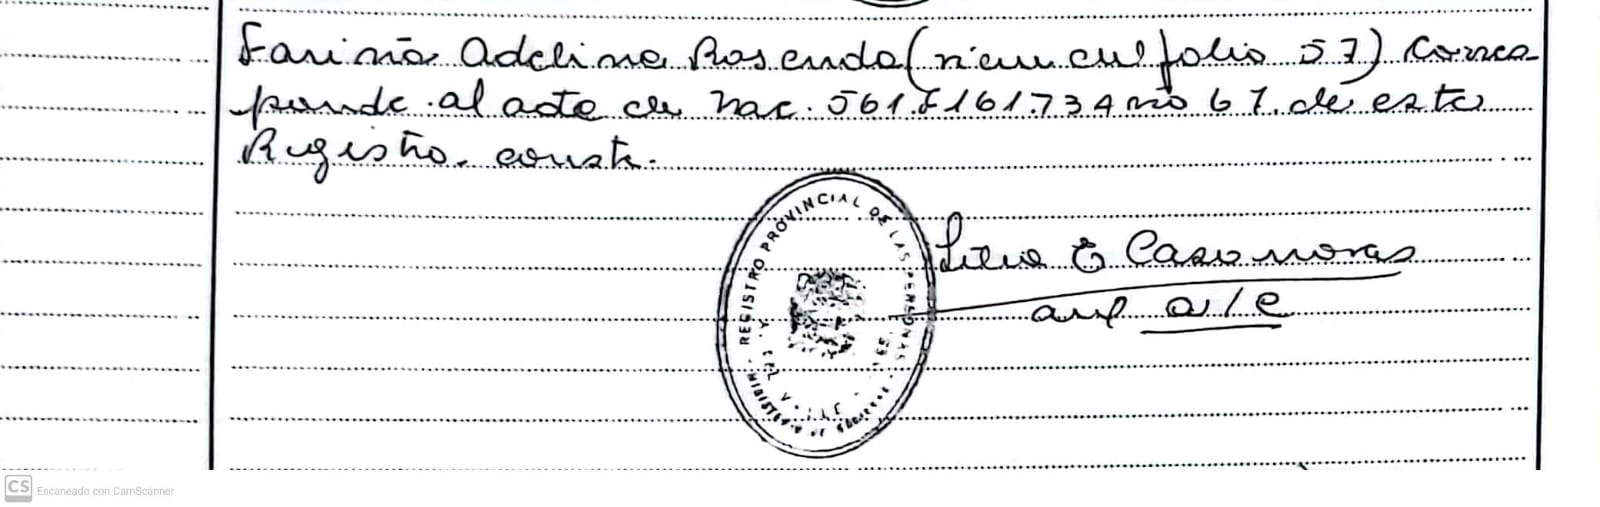 Fariña Adelina Rosenda (viene del folio 57) corres-
ponde al acta de nac. 561. F 161. T. 34 año 67. de este
Registro. conste.
REGISTRO PROVINCIAL DE LAS PERSONAS
MINISTERIO DE GOBIERNO
E Casanovas
a/c
CS Escaneado con CamScanner